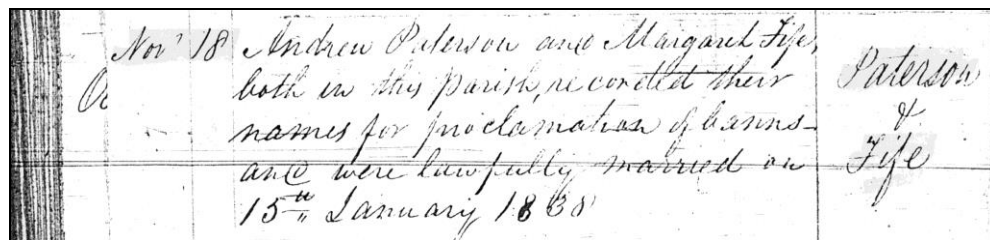 Novr 18 Andrew Paterson and Margaret Fife,
both in this parish, recorded their
names for proclamation of banns
and were lawfully married on
15th January 1838
Paterson
&
Fife